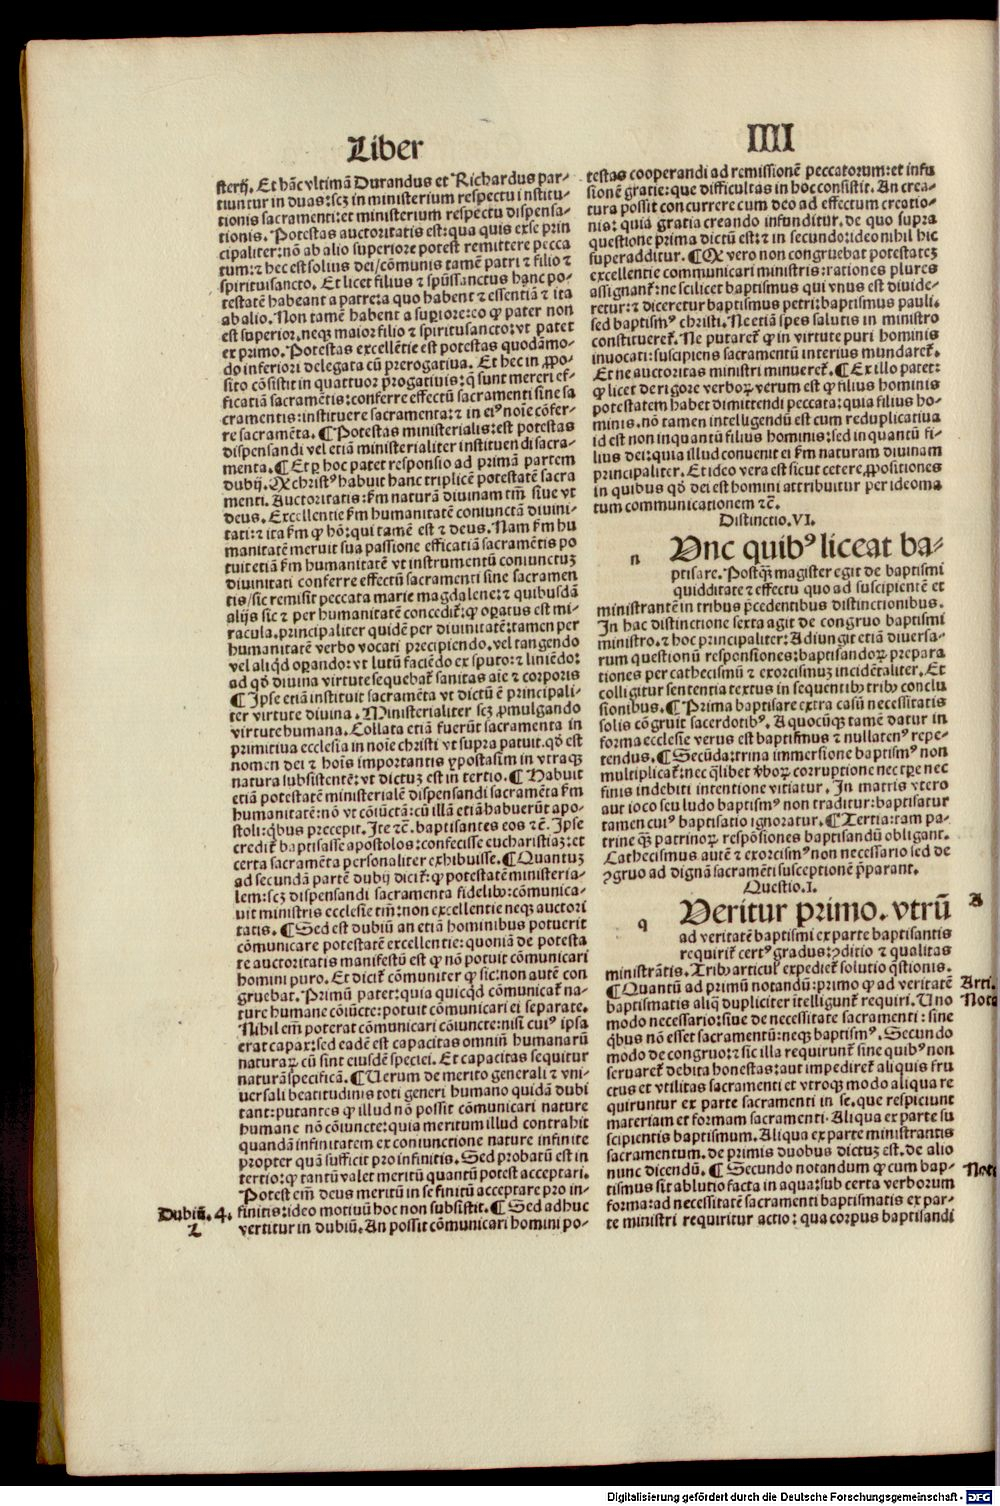 Liber
IIII
sterij. Et hāc vltimā Durandus et Richardus par-
tiuntur in duas: scꝫ in ministerium respectu institu-
tionis sacramenti: et ministerium respectu dispensa-
tionis. Potestas auctoritatis est: qua quis ex se prin
cipaliter: nō ab alio superiore potest remittere pecca
tum: ⁊ hec est solius dei/ cōmunis tamē patri ⁊ filio ⁊
spirituisancto. Et licet filius ⁊ spūssanctus hanc po-
testatē habeant a patre: a quo habent ⁊ essentiā ⁊ ita
ab alio. Non tamē habent a supiore: eo ꝙ pater non
est superior, neqꝫ maior filio ⁊ spiritusancto: vt patet
ex primo. Potestas excellētie est potestas quodāmo-
do inferiori delegata cū prerogatiua. Et hec in ꝓpo-
sito cōsistit in quattuor p̄rogatiuis: q̄ sunt mereri ef-
ficatiā sacramētis: conferre effectū sacramenti sine sa
cramentis: instituere sacramenta: ⁊ in eiꝰ noīe cōfer-
re sacramēta. ¶ Potestas ministerialis: est potestas
dispensandi vel etiā ministerialiter instituendi sacra-
menta. ¶ Et ꝑ hoc patet responsio ad primā partem
dubij. Qꝫ christꝰ habuit hanc triplicē potestatē sacra
menti. Auctoritatis: ẜm naturā diuinam tm̄ siue vt
deus. Excellentie ẜm humanitatē coniunctā diuini-
tati: ⁊ ita ẜm ꝙ hō: qui tamē est ⁊ deus. Nam ẜm hu
manitatē meruit sua passione efficatiā sacramētis po
tuit etiā ẜm humanitatē vt instrumentū coniunctuꝫ
diuinitati conferre effectū sacramenti sine sacramen
tis/ sic remisit peccata marie magdalene: ⁊ quibusdā
alijs sic ⁊ per humanitatē concedit̄: ꝙ oꝑatus est mi-
racula. principaliter quidē per diuinitatē: tamen per
humanitatē verbo vocati precipiendo. vel tangendo
vel aliqd̄ oꝑando: vt lutū faciēdo ex sputo: ⁊ liniēdo:
ad qd̄ diuina virtute sequebat̄ sanitas aīe ⁊ corporis
¶ Ipse etiā instituit sacramēta vt dictū ē principali-
ter virtute diuina. Ministerialiter scꝫ ꝓmulgando
virtute humana. Collata etiā fuerūt sacramenta in
primitiua ecclesia in noīe christi vt supra patuit. qd̄ est
nomen dei ⁊ hoīs importantis ypostasim in vtraqꝫ
natura subsistentē: vt dictuꝫ est in tertio. ¶ Habuit
etiā potestatē ministerialē dispensandi sacramēta ẜm
humanitatē: nō vt cōiūctā: cū illā etiā habuerūt apo-
stoli: qb̄us precepit. Ite ⁊c̄. baptisantes eos ⁊c̄. Ipse
credit̄ baptisasse apostolos: confecisse eucharistiaꝫ: et
certa sacramēta personaliter exhibuisse. ¶ Quantuꝫ
ad secundā partē dubij dicit̄: ꝙ potestatē ministeria-
lem: scꝫ dispensandi sacramenta fidelibꝰ: cōmunica-
uit ministris ecclesie tm̄: non excellentie neqꝫ auctori
tatis. ¶ Sed est dubiū an etiā hominibus potuerit
cōmunicare potestatē excellentie: quoniā de potesta
te auctoritatis manifestū est ꝙ nō potuit cōmunicari
homini puro. Et dicit̄ cōmuniter ꝙ sic: non autē con
gruebat. Primū patet: quia quicqd̄ cōmunicat̄ na-
ture humane cōiūcte: potuit cōmunicari ei separate.
Nihil em̄ poterat cōmunicari cōiuncte: nisi cuiꝰ ipsa
erat capax: sed eadē est capacitas omniū humanarū
naturaꝝ cū sint eiusdē speciei. Et capacitas sequitur
naturā specificā. ¶ Verum de merito generali ⁊ vni-
uersali beatitudinis toti generi humano quidā dubi
tant: putantes ꝙ illud nō possit cōmunicari nature
humane nō cōiuncte: quia meritum illud contrahit
quandā infinitatem ex coniunctione nature infinite
propter quā sufficit pro infinitis. Sed probatū est in
tertio: ꝙ tantū valet meritū quantū potest acceptari.
Potest em̄ deus meritū in se finitū acceptare pro in-
finitis: ideo motiuū hoc non subsistit. ¶ Sed adhuc
vertitur in dubiū. An possit cōmunicari homini po-
Dubiū. 4.
Z
testas cooperandi ad remissionē peccatorum: et infu
sionē gratie: que difficultas in hoc consistit. An crea-
tura possit concurrere cum deo ad effectum creatio-
nis: quia gratia creando infunditur. de quo supra
questione prima dictū est: ⁊ in secundo: ideo nihil hic
superadditur. ¶ Qꝫ vero non congruebat potestateꝫ
excellentie communicari ministris: rationes plures
assignant̄: ne scilicet baptismus qui vnus est diuide-
retur: ⁊ diceretur baptismus petri: baptismus pauli.
sed baptismꝰ christi. Ne etiā spes salutis in ministro
constitueret̄. Ne putaret̄ ꝙ in virtute puri hominis
inuocati: suscipiens sacramentū interius mundaret̄.
Et ne auctoritas ministri minueret̄. ¶ Ex illo patet:
ꝙ licet de rigore verboꝝ verum est ꝙ filius hominis
potestatem habet dimittendi peccata: quia filius ho-
minis. nō tamen intelligendū est cum reduplicatiua
id est non inquantū filius hominis: sed inquantū fi-
lius dei: quia illud conuenit ei ẜm naturam diuinam
principaliter. Et ideo vera est sicut cetere ꝓpositiones
in quibus qd̄ dei est homini attribuitur per ideoma
tum communicationem ⁊c̄.
Distinctio. VI.
n
Vnc quibꝰ liceat ba-
ptisare. Postꝙ̄ magister egit de baptismi
quidditate ⁊ effectu quo ad suscipientē et
ministrantē in tribus p̄cedentibus distinctionibus.
In hac distinctione sexta agit de congruo baptismi
ministro. ⁊ hoc principaliter: Adiungit etiā diuersa-
rum questionū responsiones: baptisandoꝝ prepara
tiones per cathecismū ⁊ exorcismuꝫ incidētaliter. Et
colligitur sententia textus in sequentibꝰ tribꝰ conclu
sionibus. ¶ Prima baptisare extra casū necessitatis
solis cōgruit sacerdotibꝰ. A quocūqꝫ tamē datur in
forma ecclesie verus est baptismus ⁊ nullatenꝰ repe-
tendus. ¶ Secūda: trina immersione baptismꝰ non
multiplicat̄: nec q̄libet v̄boꝝ corruptione nec tꝑe nec
finis indebiti intentione vitiatur. In matris vtero
aut ioco seu ludo baptismꝰ non traditur: baptisatur
tamen cuiꝰ baptisatio ignoratur. ¶ Tertia: tam pa-
trine ꝙ̄ patrinoꝝ respōsiones baptisandū obligant.
Cathecismus autē ⁊ exorcismꝰ non necessario sed de
ꝯgruo ad dignā sacramēti susceptionē p̄parant.
Questio. I.
q
Veritur primo. vtrū
A
ad veritatē baptismi ex parte baptisantis
requirit̄ certꝰ gradus: ꝯditio ⁊ qualitas
ministrātis. Tribꝰ articul̓ expediet̄ solutio q̄stionis.
¶ Quantū ad primū notandū: primo ꝙ ad veritatē
Arti.
baptismatis aliq̄ dupliciter ītelligunt̄ requiri. Uno
Nota
modo necessario: siue de necessitate sacramenti: sine
qb̄us nō esset sacramentū: neqꝫ baptismꝰ. Secundo
modo de congruo: ⁊ sic illa requirunt̄ sine quibꝰ non
seruaret̄ debita honestas: aut impediret̄ aliquis fru
ctus et vtilitas sacramenti et vtroqꝫ modo aliqua re
quiruntur ex parte sacramenti in se. que respiciunt
materiam et formam sacramenti. Aliqua ex parte su
scipientis baptismum. Aliqua ex parte ministrantis
sacramentum. de primis duobus dictuꝫ est. de alio
nunc dicendū. ¶ Secundo notandum ꝙ cum bap-
Nota
tismus sit ablutio facta in aqua: sub certa verborum
forma: ad necessitatē sacramenti baptismatis ex par-
te ministri requiritur actio: qua corpus baptisandi
Digitalisierung gefördert durch die Deutsche Forschungsgemeinschaft - DFG